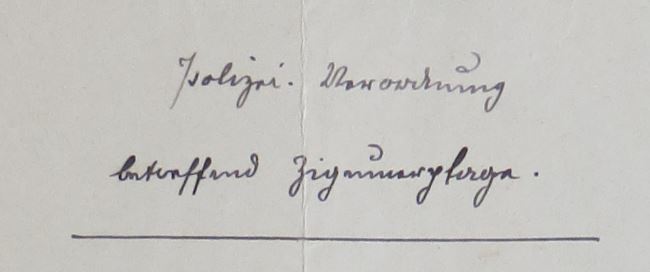 Polizei. Verordnung
betreffend Zigeunerplage.